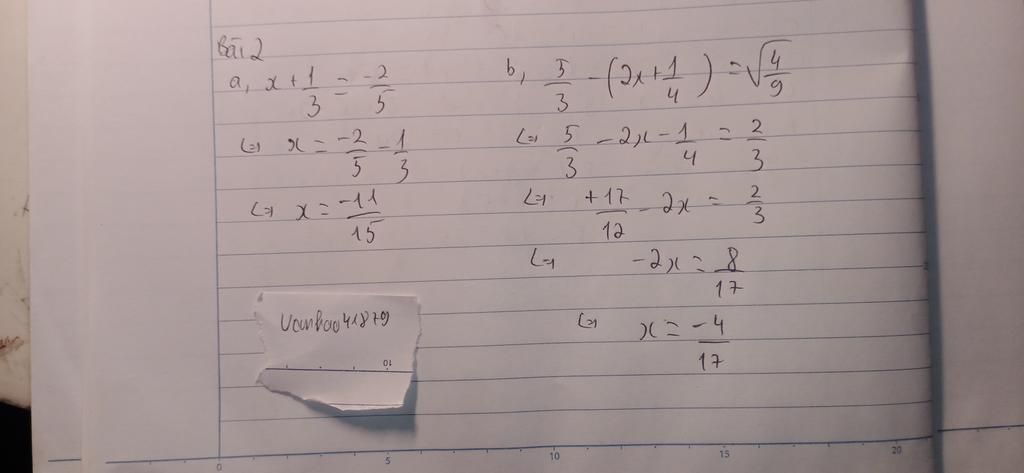 Bài 2
a, x + 1/3 = -2/5
<=> x = -2/5 - 1/3
<=> x = -11/15
b, 5/3 - (2x + 1/4) = √4/9
<=> 5/3 - 2x - 1/4 = 2/3
<=> +17/12 - 2x = 2/3
<=> -2x = 8/17
<=> x = -4/17
Vanhao41879
01
0 5 10 15 20